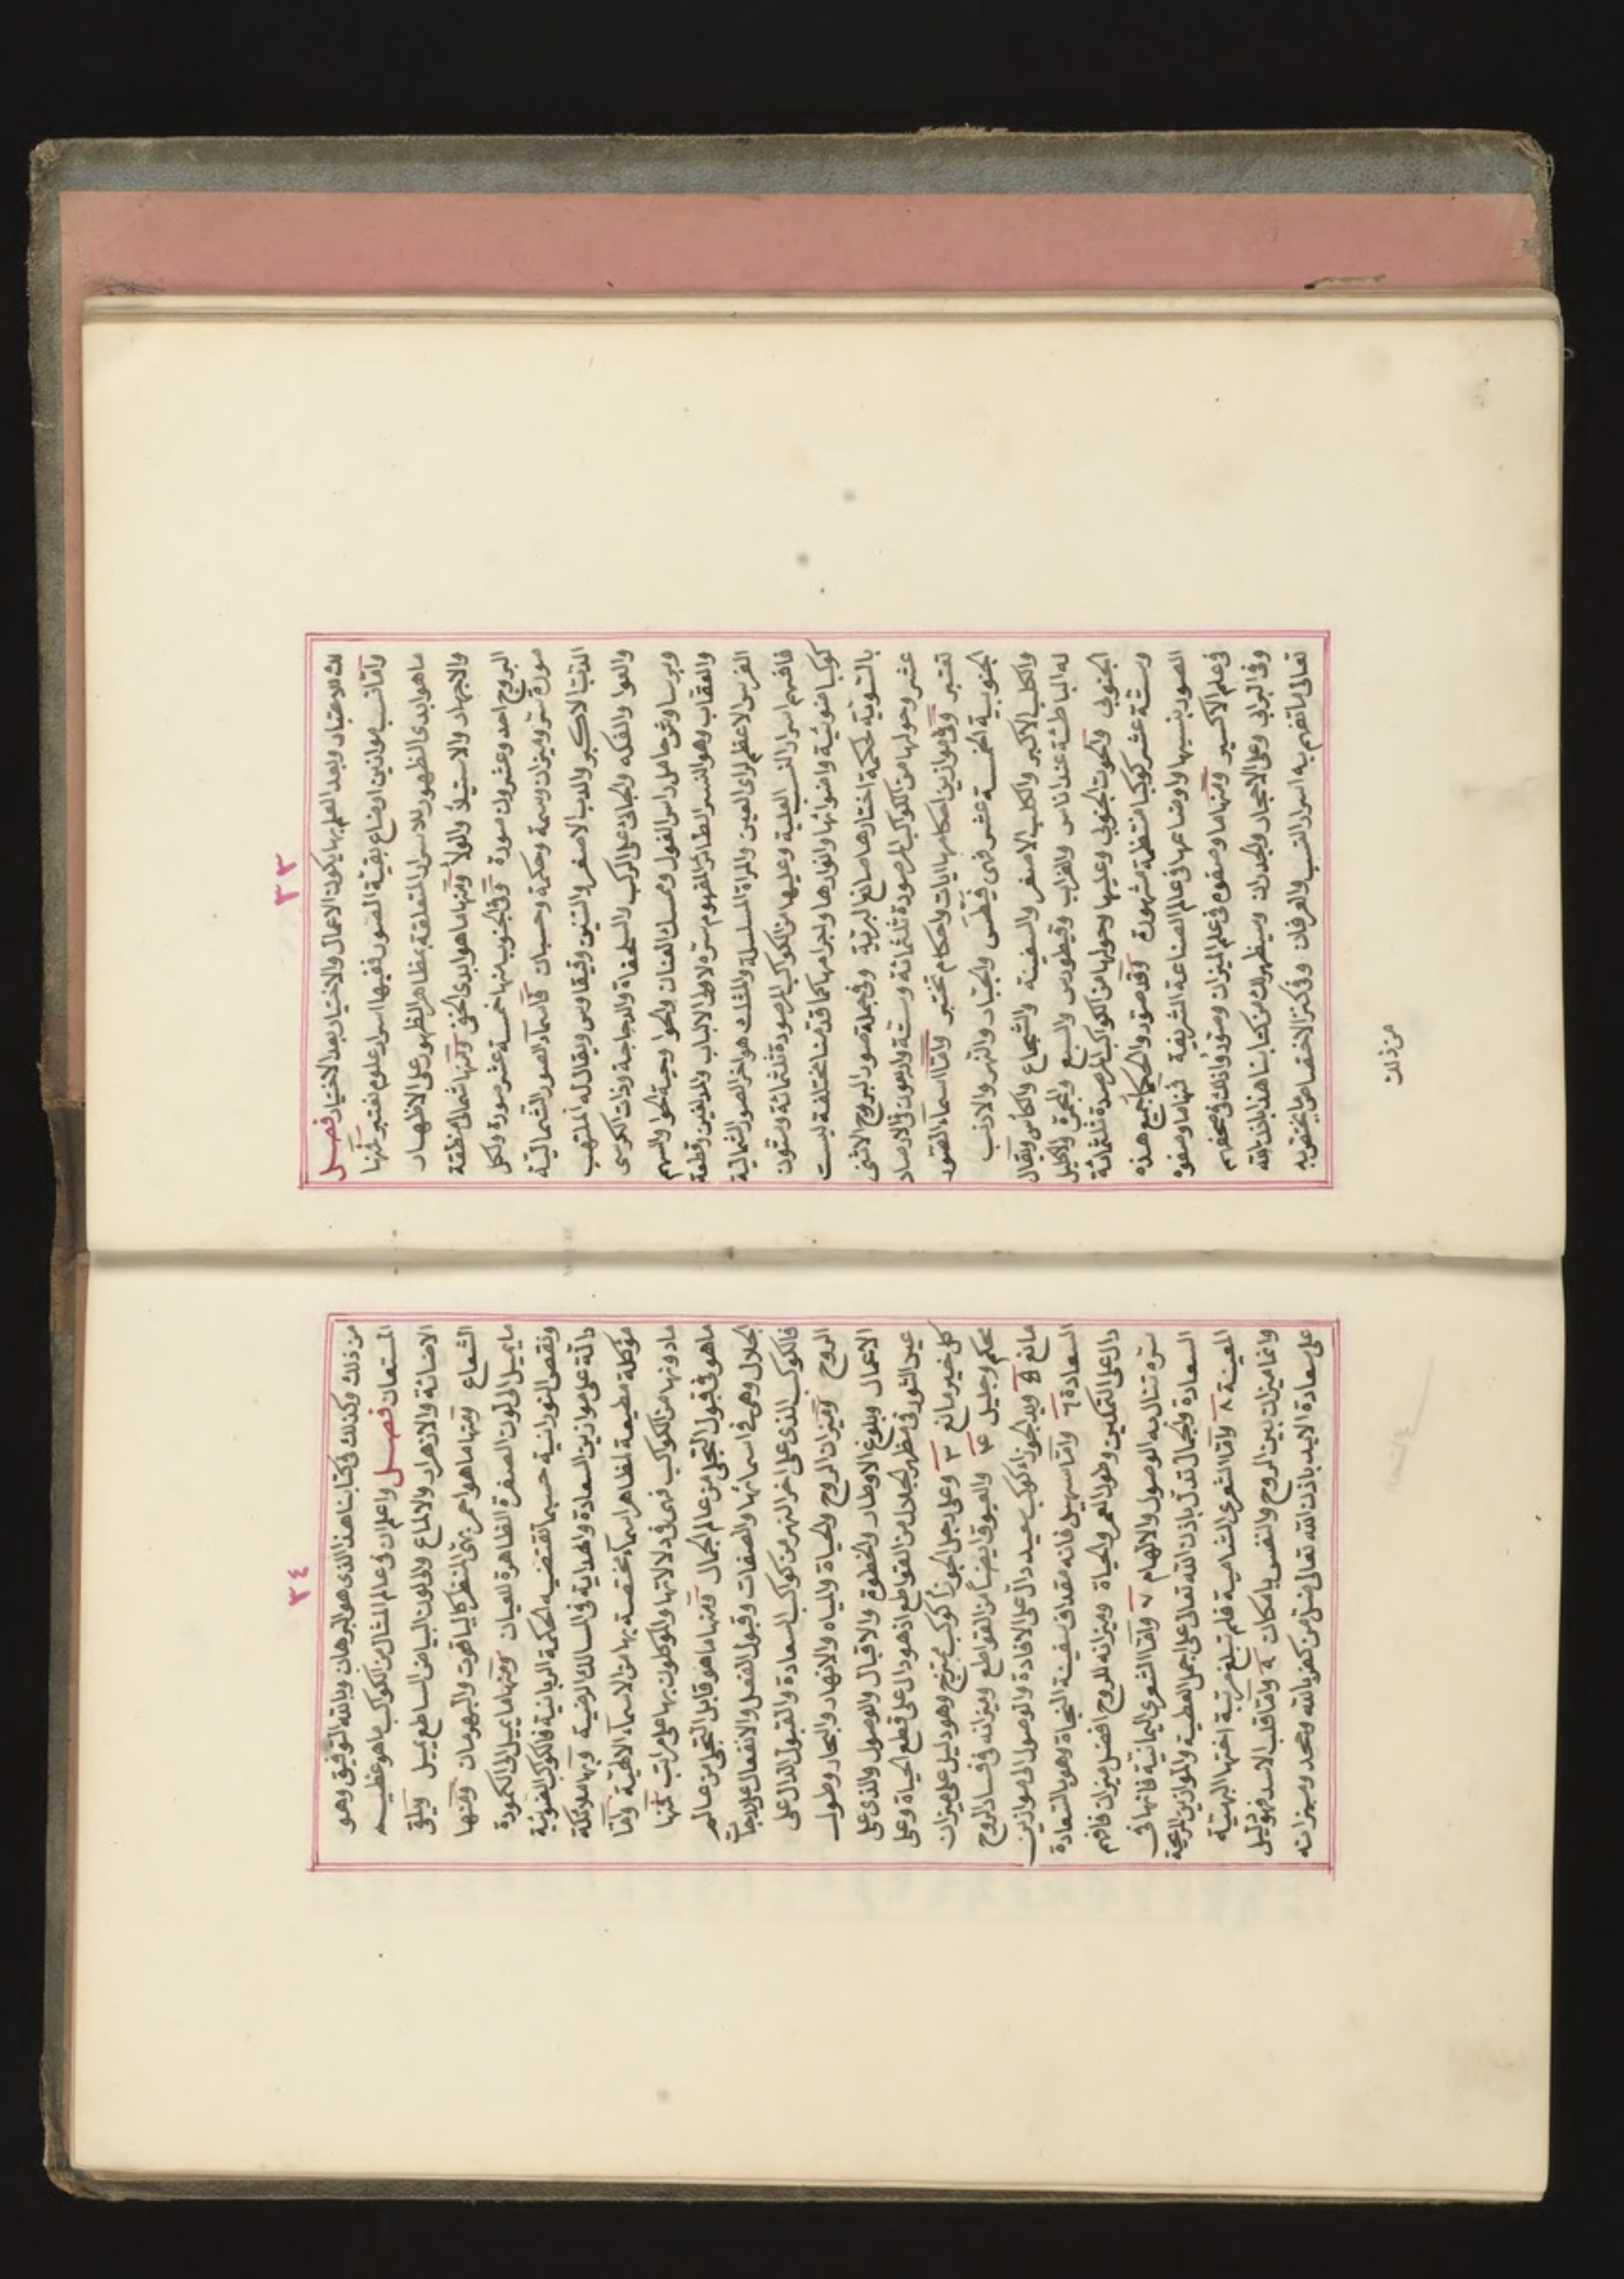 ٣٣
لك للاعتبار وبعد العلم بها يكون الاعمال والاختيار بعد الاختبار فصل
واما نسب موازين اوضاع بقية الصور ففيها اسرار علوم تعتبر فمنها
ما هو ابدى الظهور للاسرار المتعلقة بمظاهر الظهور على الاظهار
والاجهار والاستيلاء والولاء ومنها ما هو ابدى الخفى ومنها شمالى منطقة
البروج احد وعشرون صورة وفى الجنوب منها خمسة عشر صورة ولكل
صورة سر وميزان وسمة وحكمة وحسبان فاسماء الصور الشمالية
الدب الاكبر والدب الاصغر والتنين وقيقاوس ويقال له الملتهب
والعوا والفكه والجاثى على الركب والسلحفاة والدجاجة وذات الكرسى
وبرساوش حامل راس الغول وممسك العنان والحوا وحية الحوا والسهم
والعقاب وهو النسر الطائر المفهوم سره لاولى الالباب والدلفين وقطعة
الفرس الاعظم لراى العين والمراة المسلسلة والمثلث هو اخر الصور الشمالية
فافهم اسرار النسب العلية وعليها من الكواكب المرصودة ثلثمائة وستون
كوكبا ضوئية واضوائها وانوارها واجرامها كما قدمنا مختلفة ليست
بالسوية لحكمة اختارها صانع البرية وفى جملة صور البروج الاثنى
عشر وحولها من الكواكب المرصودة ثلثمائة وستة واربعون فى الارصاد
تعتبر وفى موازين احكامها ايات واحكام تختبر واما اسماء الصور
الجنوبية الخمسة عشر فهى قيطس والجبار والنهر والارنب
والكلب الاكبر والكلب الاصغر والسفينة والشجاع والكاس ويقال
له الباطئة عند اناس والغراب وقيطورس والسبع والمجمرة والاكليل
الجنوبى والحوت الجنوبى وعليها وحولها من الكواكب المرصدة ثلثمائة
وستة عشر كوكبا منتظمة مشهورة وقد صور الحكما جميع هذه
الصور بنسبها واوضاعها فى علم الصناعة الشريفة فمنها ما وصفوه
فى علم الاكسير ومنها ما وصفوه فى علم الميزان وصوروا ذلك فى صحفهم
وفى البرابى وعلى الاحجار والجدران وسيظهر لك من كتابنا هذا باذن الله
تعالى ما تفهم به اسرار النسب والعرفان وفى كنز الاختصاص ما يختص به
من ذلك
٣٤
من ذلك وكذلك فى كتابنا هذا الذى هو البرهان وبالله التوفيق وهو
المستعان فصل واعلم ان فى عالم المثال من الكواكب ما هو عظيم
الاضائة والازهرار والالماع والى لون البياض الساطع يميل ويلقى
الشعاع ومنها ما هو احمر بهى المنظر كالياقوت والبهرمان ومنها
ما يميل الى لون الصفرة الظاهرة للعيان ومنها ما يميل الى الكمودة
ونقص النورانية حسبما تقتضيه الحكمة الربانية فالكواكب الضوئية
دالة على موازين السعادة والهداية فى المسالك الرضية وبها ملائكة
موكلة مطيعة لمظاهر اسماء مختصة بها من الاسماء الالهية واما
ما دونها من الكواكب فهى فى دلالاتها والموكلون بها على مراتب فمنها
ما هو فى قبول التجلى من عالم الجمال ومنها ما هو قابل التجلى من عالم
الجلال وهى فى اسمائها والصفات وقبول الفعل والانفعال على درجات
فالكوكب الذى على اخر النهر من كواكب السعادة والقبول الدال على
الروح وميزان الروح والحياة والمياه والانهار والبحار وطول
الاعمال وبلوغ الاوطار والحظوة والاقبال والوصول والذى على
عين الثور فى مظهر الجلال من القواطع اذ هو دال على قطع الحياة وعلى
كل خير مانع ٣ وعلى رجل الجوزا كوكب ممتزج وهو دليل على ميزان
محكم وجليل ٤ والعيوق ايضا من القواطع وميزانه فى فساد الروح
مانع ٥ ويد الجوزاء كوكب سعيد دال على الافادة والوصول الى موازين
السعادة ٦ واما سهيل فانه مقداف سفينة النجاة وهو بالسعادة
دال على التمكين وطول العمر والحياة وميزانه للروح افضل ميزان فافهم
سره تنال به الوصول والالهام ٧ واما الشعرى اليمانية فانها فى
السعادة والجمال تدل باذن الله تعالى على اجمل العطية والموازين المرجحة
المعينة ٨ واما الشعرى الشامية فلم تبلغ مرتبة اختها البهية
وانما ميزان بين الروح والنفس بامكان ٩ واما قلب الاسد فهو دليل
على سعادة الابد باذن الله تعالى فسق من كفر بالله وجحد وميزانه